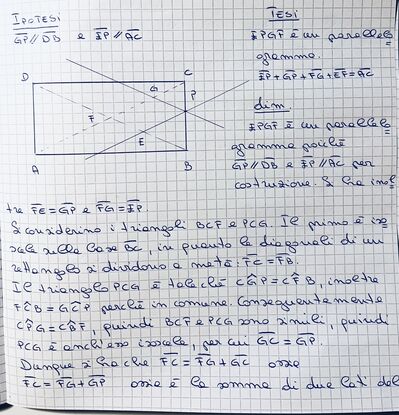 IPOTESI
G̅P̅ // D̅B̅ e E̅P̅ // A̅C̅
TESI
EPGF è un parallelo
gramma.
E̅P̅ + G̅P̅ + F̅G̅ + E̅F̅ = A̅C̅
D
C
G
P
F
E
A
B
dim.
EPGF è un parallelo
gramma poiché
G̅P̅ // D̅B̅ e E̅P̅ // A̅C̅ per
costruzione. Si ha inol
tre F̅E̅ = G̅P̅ e F̅G̅ = E̅P̅.
Si considerino i triangoli BCF e PCG. Il primo è iso
scele sulla base B̅C̅, in quanto le diagonali di un
rettangolo si dividono a metà: F̅C̅ = F̅B̅.
Il triangolo PCG è tale che CĜP = CF̂B, inoltre
FĈB = GĈP perché in comune. Conseguentemente
CP̂G = CB̂F, quindi BCF e PCG sono simili, quindi
PCG è anch'esso isoscele, per cui G̅C̅ = G̅P̅.
Dunque si ha che F̅C̅ = F̅G̅ + G̅C̅ ossia
F̅C̅ = F̅G̅ + G̅P̅ ossia è la somma di due lati del